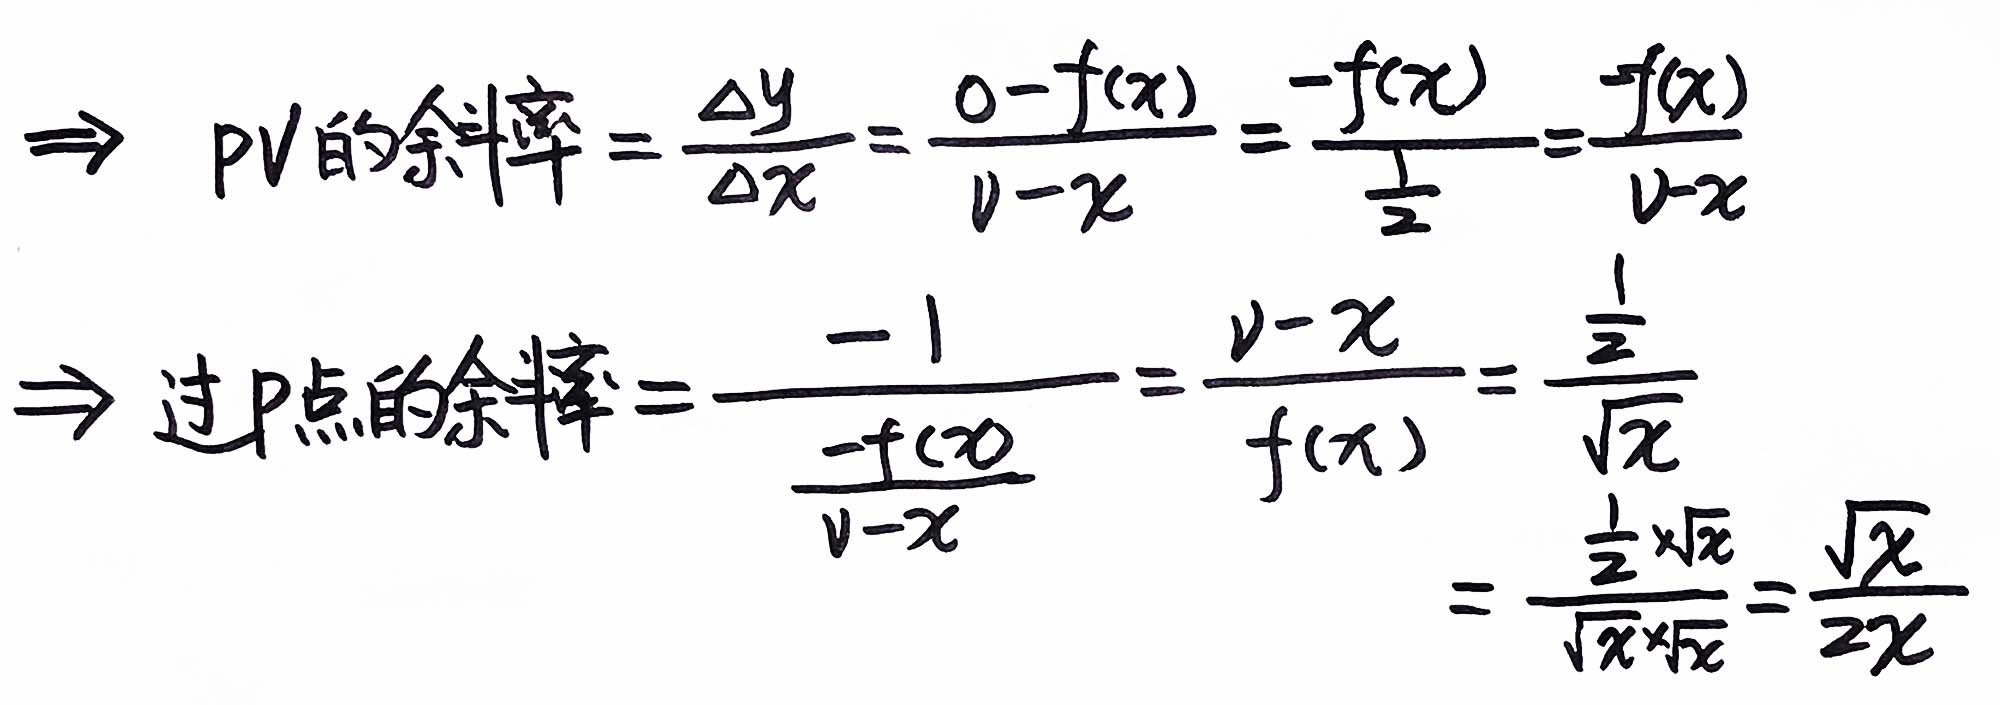 ⇒ PV的余斜率 = \frac{△y}{△x} = \frac{0-f(x)}{v-x} = \frac{-f(x)}{\frac{1}{2}} = \frac{-f(x)}{v-x}
⇒ 过P点的余斜率 = \frac{-1}{\frac{-f(x)}{v-x}} = \frac{v-x}{f(x)} = \frac{\frac{1}{2}}{\sqrt{x}}
= \frac{\frac{1}{2}×\sqrt{x}}{\sqrt{x}×\sqrt{x}} = \frac{\sqrt{x}}{2x}